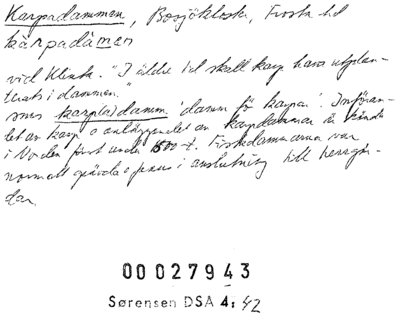 Karpadammen, Bosjökloster, Frosta hd
kàrpadàmen
vid Klinta. "I äldre tid skall karp havts utplan-
terats i dammen."
snes karp(a)damm 'damm för karpar'. Införan-
det av karp o anläggandet av karpdammar är kända
i Norden först under 1500-t. Fiskdammarna var
normalt grävda o finns i anslutning till herrgår-
dar.
00027943
Sørensen DSA 4: 42